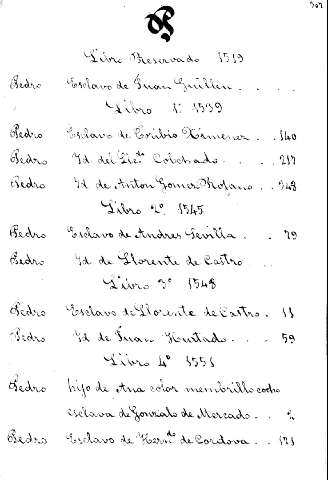 307
P
Libro Reservado 1539
Pedro Esclavo de Juan Guillen . . . .
Libro 1º 1539
Pedro Esclavo de Toribio Ximenez . . 140
Pedro Id. del Licdo Colchado . . . . 217
Pedro Id de Anton Gomez Rofano . . 348
Libro 2º. 1545
Pedro Esclavo de Andres Sevilla . . 79
Pedro Id de Llorente de Castro . .
Libro 3º 1548
Pedro Esclavo de Llorente de Castro . 11
Pedro Id de Juan Hurtado . . . 59
Libro 4º 1551
Pedro hijo de Ana color membrillo cocho
esclava de Gonzalo de Mercado . .
Pedro Esclavo de Herndo de Cordova . . 171